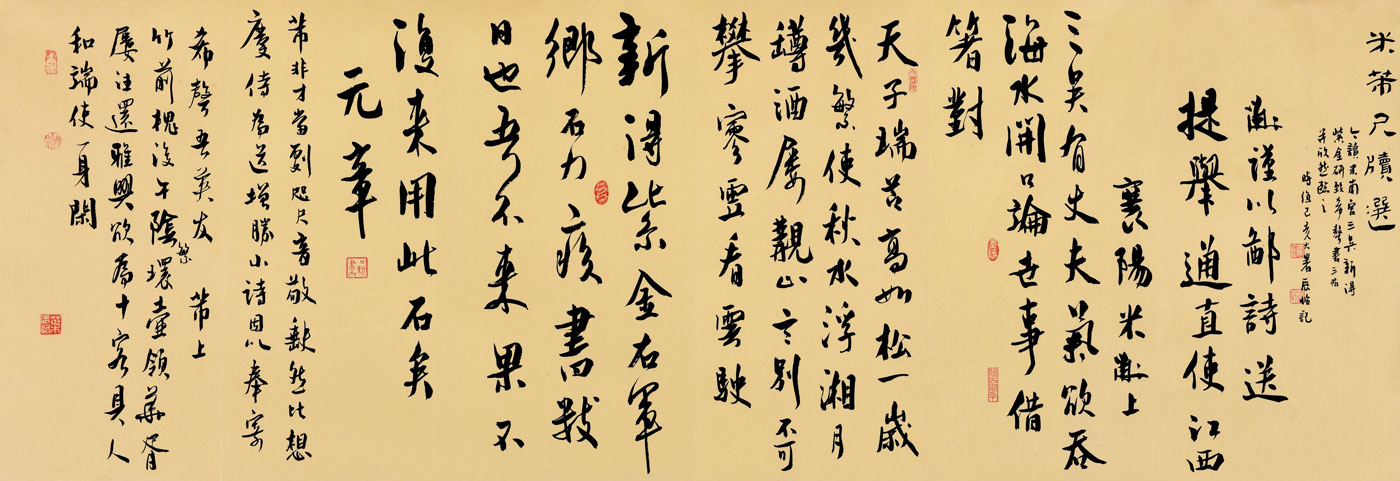 米芾尺牘選
今讀米南宮三吳新得
紫金研致希聲書三帖
并欣然臨之
時值己亥大暑辰臨記
黻謹以鄙詩送
提舉通直使江西
襄陽米黻上
三吳有丈夫氣欲吞
海水開口論世事借
箸對
天子瑞節高如松一歲
幾繁使秋水浮湘月
罇酒屢觀山之別不可
攀寥 看雲駛
新得紫金右軍
鄉石力疾書四數
日也吾不來果不
復來用此石矣
元章
芾非才當劇咫尺音敬缺然比想
慶侍為送增勝小詩因以奉寄
希聲吾英友 芾上
竹前槐後午陰繁環壺領華胥
屢往還雅興欲為十客具人
和端使一身閑